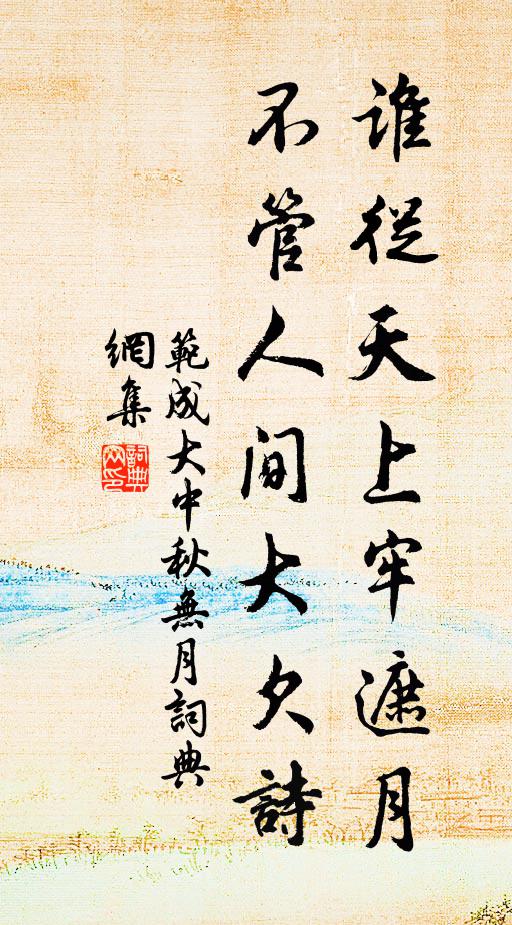 誰從天上牢遮月
不管人間大欠詩
範成大中秋無月詞典
網集
詞典網印